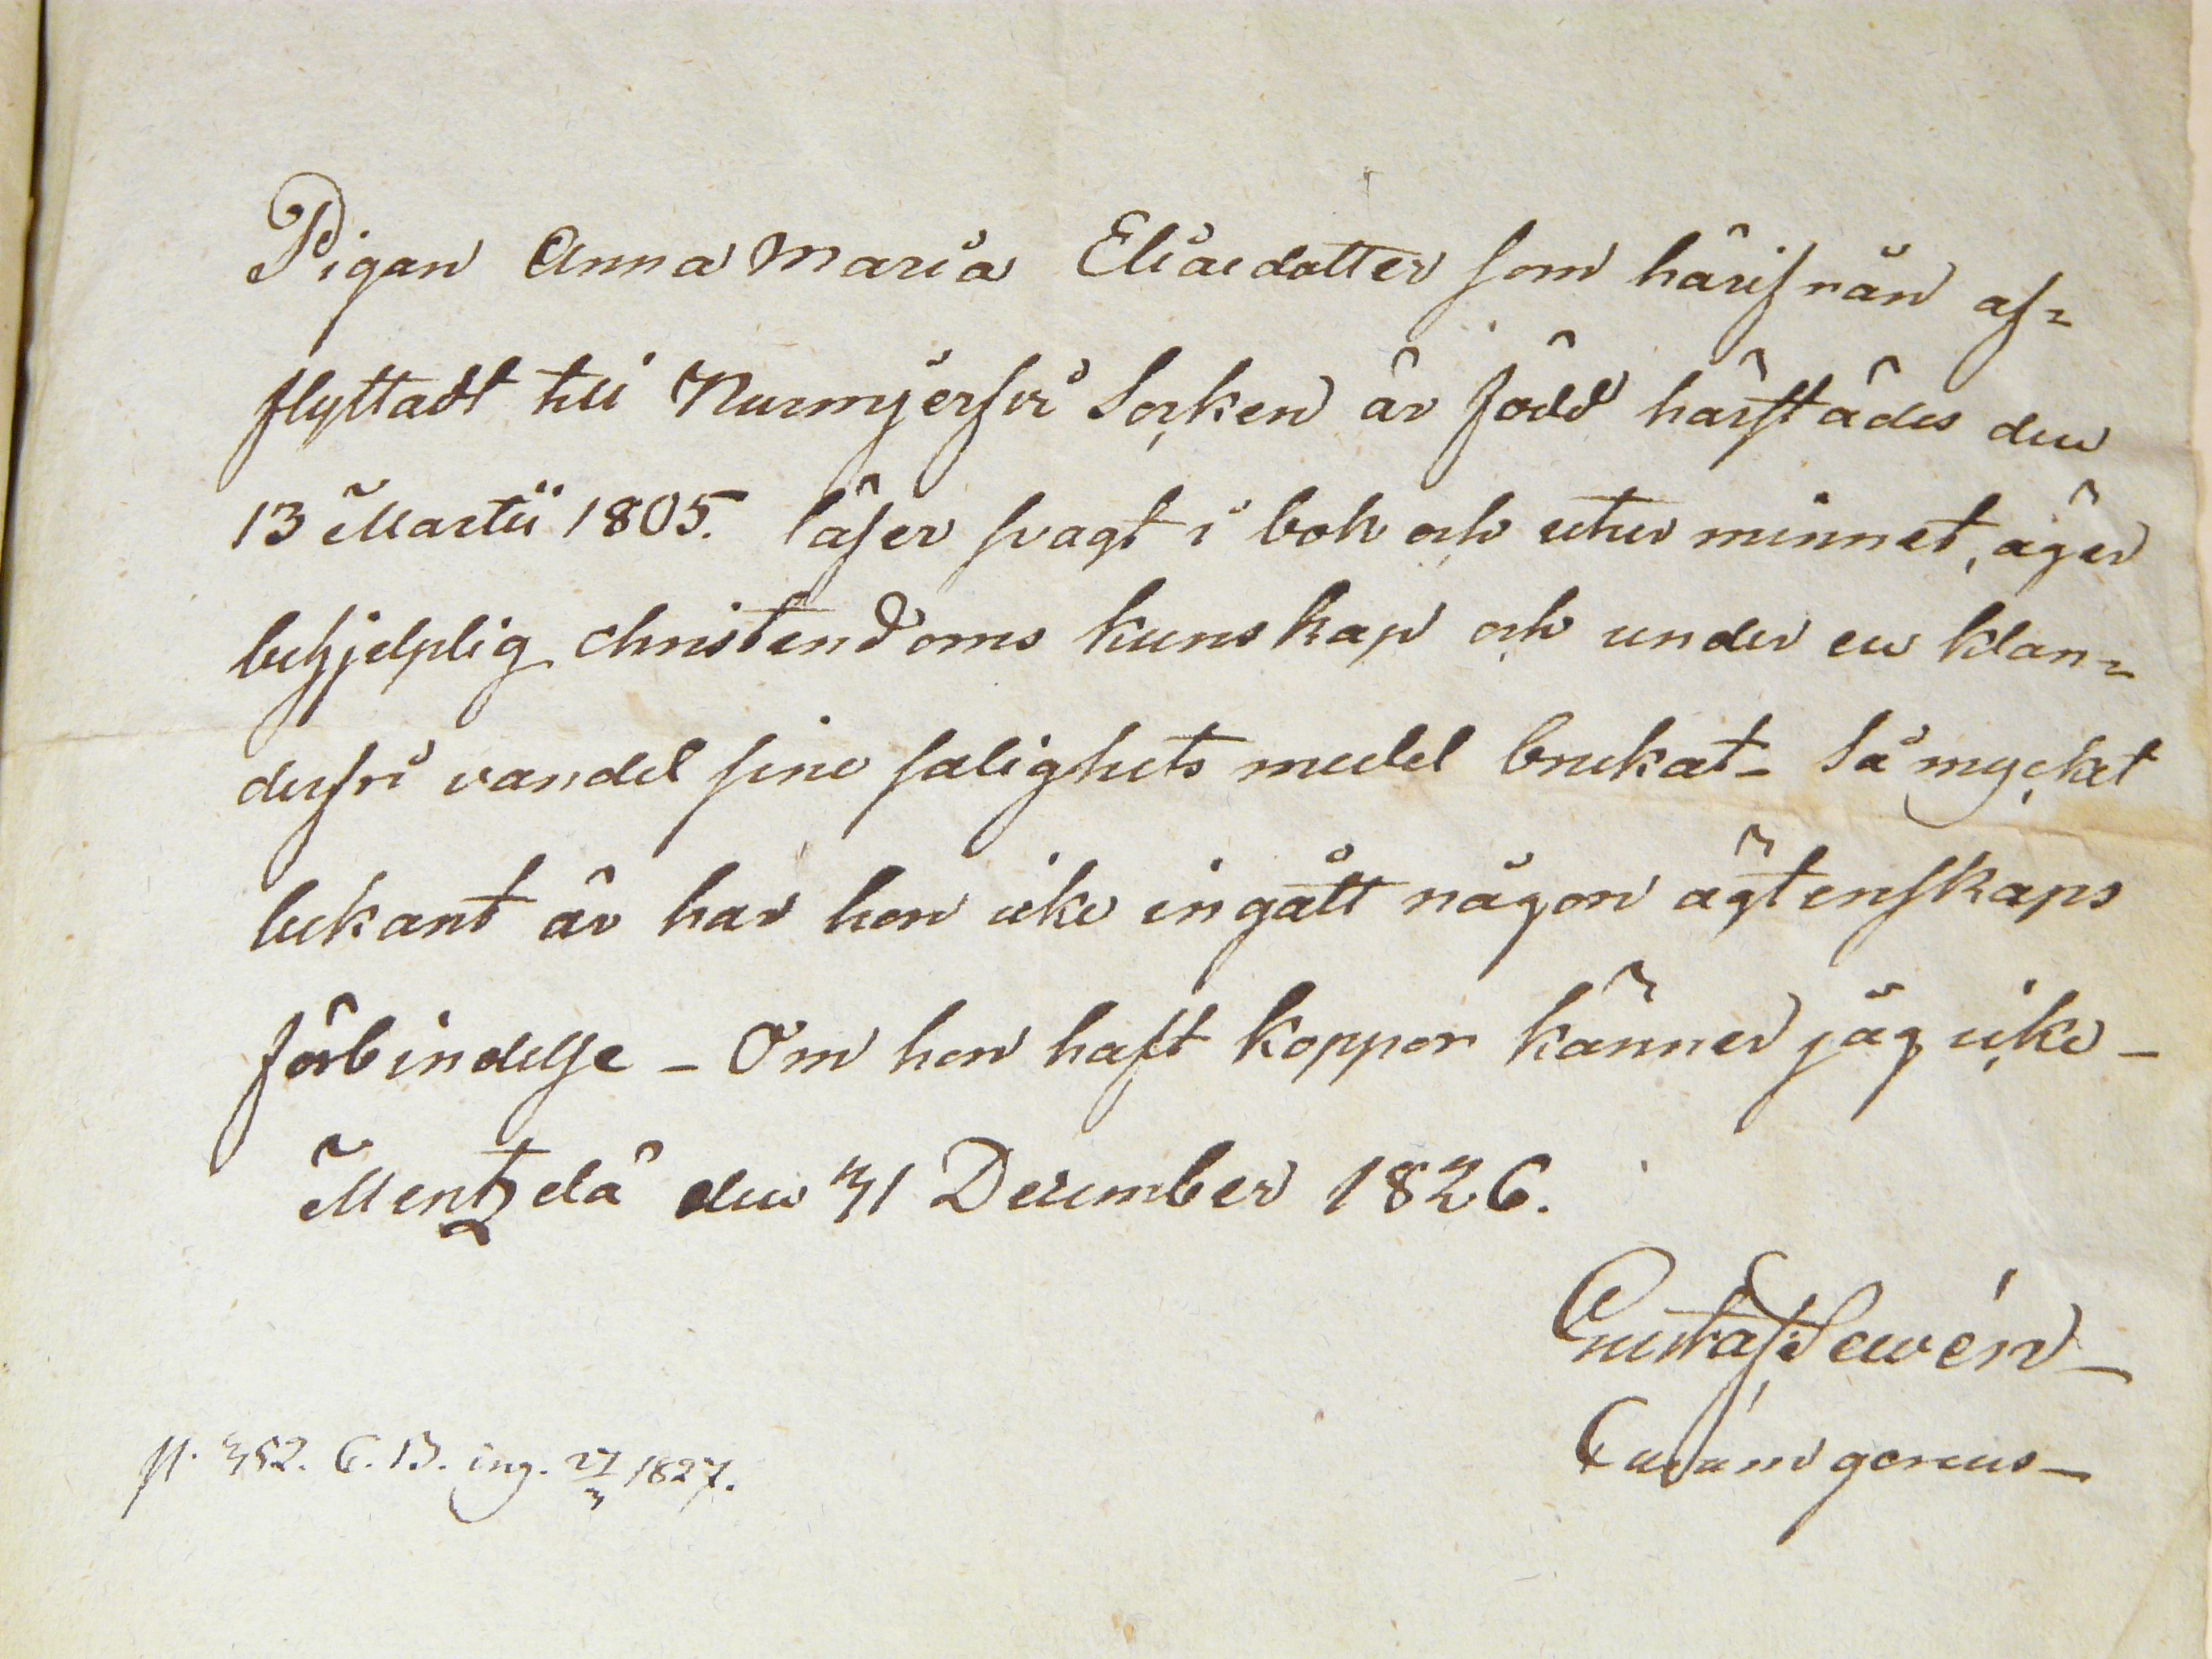 Pigan Anna Maria Eliaedotter som härifrån af=
flyttadt till Nurmijerfvi Socken är född härstädes den
13 Martii 1805. läser svagt i bok och utur minnet, äger
behjelplig christendoms kunskap och under en klan=
derfri vandel sine salighets medel brukat – Så mycket
bekant är har hon icke ingått någon ägtenskaps
förbindelse – Om hon haft koppor känner jag icke –
Mentzelä den 31 December 1826.
Gustaf Lewén –
Curam gerens –
N. 352. C. B. ing. 27/3 1827.